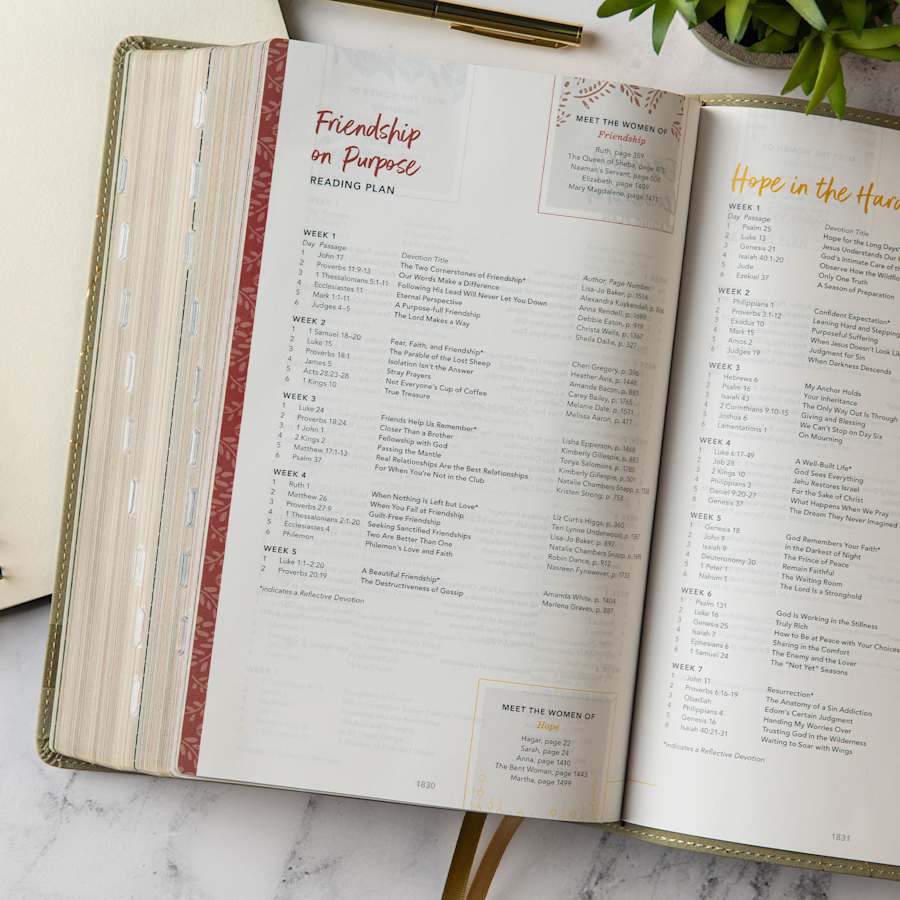 Friendship
on Purpose
READING PLAN
MEET THE WOMEN OF
Friendship
Ruth, page 359
The Queen of Sheba, page
Naaman's Servant, page 506
Elizabeth, page 1409
Mary Magdalene, page 1471
WEEK 1
Day Passage Devotion Title Author, Page Number
1 John 17 The Two Cornerstones of Friendship* Lisa-Jo Baker, p. 1514
2 Proverbs 11:9-13 Our Words Make a Difference Alexandra Kuykendall, p.
3 1 Thessalonians 5:1-11 Following His Lead Will Never Let You Down Anna Rendell, p. 1688
4 Ecclesiastes 11 Eternal Perspective Debbie Eaton, p. 919
5 Mark 1:1-11 A Purpose-full Friendship Christa Wells, p. 1367
6 Judges 4–5 The Lord Makes a Way Sheila Dailie, p. 327
WEEK 2
1 1 Samuel 18–20 Fear, Faith, and Friendship* Cheri Gregory, p. 396
2 Luke 15 The Parable of the Lost Sheep Heather Avis, p. 1448
3 Proverbs 18:1 Isolation Isn't the Answer Amanda Bacon, p. 885
4 James 5 Stray Prayers Carey Bailey, p. 1765
5 Acts 28:23-28 Not Everyone's Cup of Coffee Melanie Dale, p. 1571
6 1 Kings 10 True Treasure Melissa Aaron, p. 477
WEEK 3
1 Luke 24 Friends Help Us Remember* Lisha Epperson, p. 1468
2 Proverbs 18:24 Closer Than a Brother Kimberly Gillespie, p. 885
3 1 John 1 Fellowship with God Tonya Salomons, p. 1780
4 2 Kings 2 Passing the Mantle Kimberly Gillespie, p. 501
5 Matthew 17:1-13 Real Relationships Are the Best Relationships Natalie Chambers Snapp, p.
6 Psalm 37 For When You're Not in the Club Kristen Strong, p. 758
WEEK 4
1 Ruth 1 When Nothing Is Left but Love* Liz Curtis Higgs, p. 360
2 Matthew 26 When You Fail at Friendship Teri Lynne Underwood, p.
3 Proverbs 27:9 Guilt-Free Friendship Lisa-Jo Baker, p. 897
4 1 Thessalonians 2:1-20 Seeking Sanctified Friendships Natalie Chambers Snapp, p.
5 Ecclesiastes 4 Two Are Better Than One Robin Dance, p. 912
6 Philemon Philemon's Love and Faith Nasreen Fynewever, p. 1733
WEEK 5
1 Luke 1:1–2:20 A Beautiful Friendship* Amanda White, p. 1404
2 Proverbs 20:19 The Destructiveness of Gossip Marlena Graves, p. 887
*indicates a Reflective Devotion
MEET THE WOMEN OF
Hope
Hagar, page 22
Sarah, page 24
Anna, page 1410
The Bent Woman, page 1443
Martha, page 1499
1830
Hope in the Hard
WEEK 1
Day Passage Devotion Title
1 Psalm 25 Hope for the Long Days*
2 Luke 13 Jesus Understands Our
3 Genesis 21 God's Intimate Care of
4 Isaiah 40:1-20 Observe How the
5 Jude Only One Truth
6 Ezekiel 37 A Season of Preparation
WEEK 2
1 Philippians 1 Confident Expectation*
2 Proverbs 3:1-12 Leaning Hard and Stepping
3 Exodus 10 Purposeful Suffering
4 Mark 15 When Jesus Doesn't Look
5 Amos 2 Judgment for Sin
6 Judges 19 When Darkness Descends
WEEK 3
1 Hebrews 6 My Anchor Holds
2 Psalm 16 Your Inheritance
3 Isaiah 43 The Only Way Out Is Through
4 2 Corinthians 9:10-15 Giving and Blessing
5 Joshua 6 We Can't Stop on Day Six
6 Lamentations 1 On Mourning
WEEK 4
1 Luke 6:17-49 A Well-Built Life*
2 Job 28 God Sees Everything
3 2 Kings 10 Jehu Restores Israel
4 Philippians 3 For the Sake of Christ
5 Daniel 9:20-27 What Happens When We Pray
6 Genesis 37 The Dream They Never Imagined
WEEK 5
1 Genesis 18 God Remembers Your Faith*
2 John 9 In the Darkest of Night
3 Isaiah 9 The Prince of Peace
4 Deuteronomy 30 Remain Faithful
5 1 Peter 1 The Waiting Room
6 Nahum 1 The Lord Is a Stronghold
WEEK 6
1 Psalm 131 God Is Working in the Stillness
2 Luke 16 Truly Rich
3 Genesis 25 How to Be at Peace with Your Choices
4 Isaiah 7 Sharing in the Comfort
5 Ephesians 6 The Enemy and the Lover
6 1 Samuel 24 The "Not Yet" Seasons
WEEK 7
1 John 11 Resurrection*
2 Proverbs 6:16-19 The Anatomy of a Sin Addiction
3 Obadiah Edom's Certain Judgment
4 Philippians 4 Handing My Worries Over
5 Genesis 16 Trusting God in the Wilderness
6 Isaiah 40:21-31 Waiting to Soar with Wings
*indicates a Reflective Devotion
1831